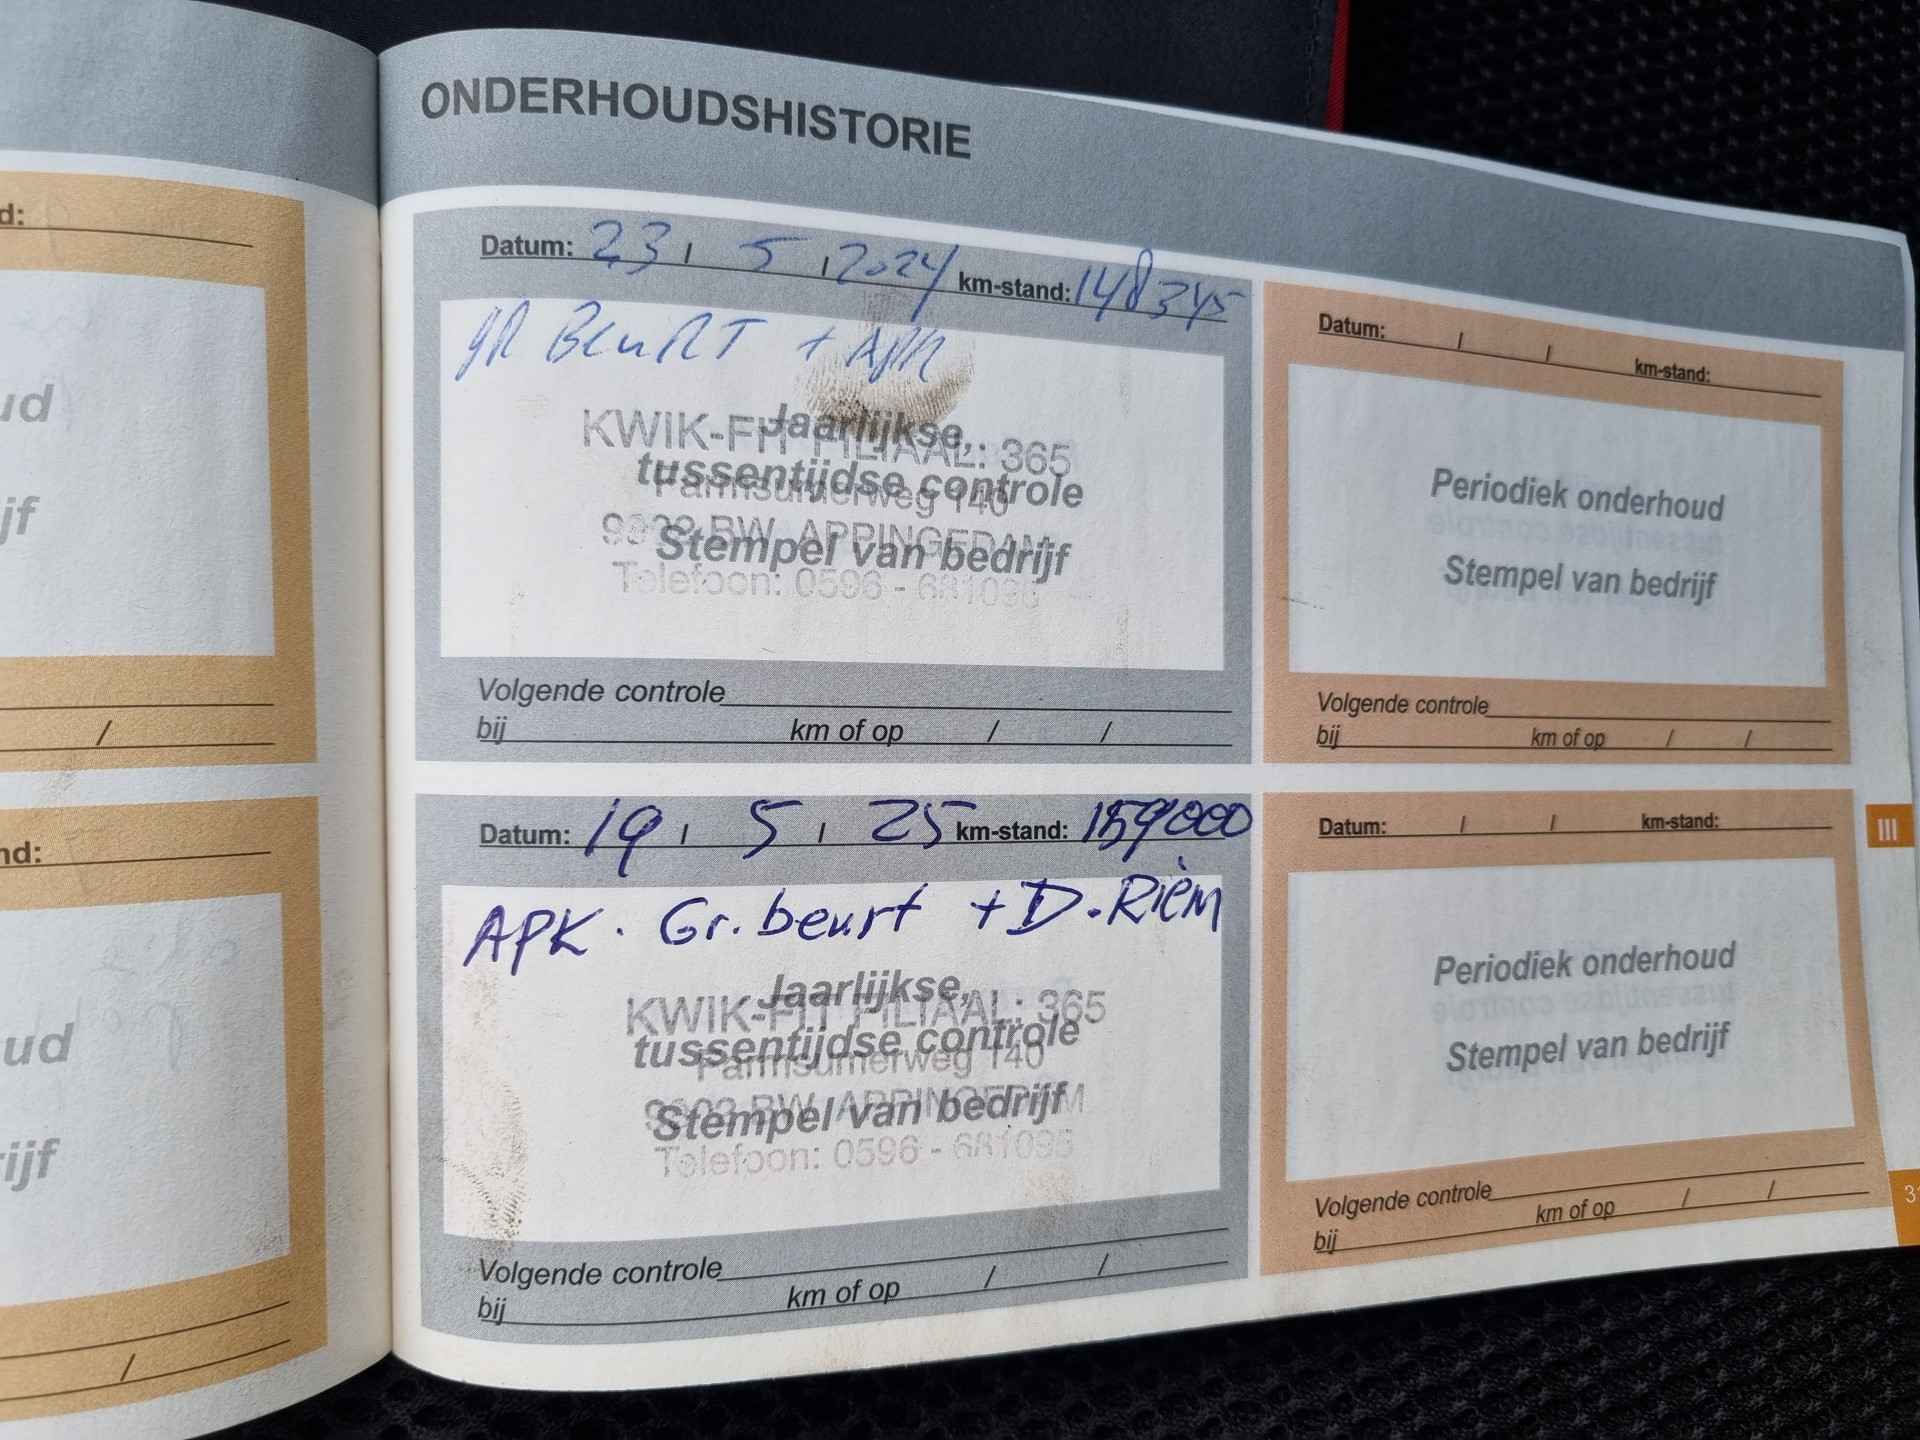 ONDERHOUDSHISTORIE
d:
ud
jf
/
Datum: 23 / 5 / 2024 km-stand: 148345
gR BeuRT + APK
Jaarlijkse,
KWIK-FIT FILIAAL: 365
tussentijdse controle
Farmsumerweg 140
BW APPINGEDAM
Stempel van bedrijf
Telefoon: 0596 - 681095
Volgende controle
bij km of op / /
Datum: / / km-stand:
Periodiek onderhoud
Stempel van bedrijf
Volgende controle
bij km of op / /
nd:
ud
rijf
/
Datum: 19 / 5 / 25 km-stand: 159000
APK. Gr. beurt + D.Riem
Jaarlijkse,
KWIK-FIT FILIAAL: 365
tussentijdse controle
Farmsumerweg 140
BW APPINGEDAM
Stempel van bedrijf
Telefoon: 0596 - 681095
Volgende controle
bij km of op / /
Datum: / / km-stand:
Periodiek onderhoud
Stempel van bedrijf
Volgende controle
bij km of op / /
III